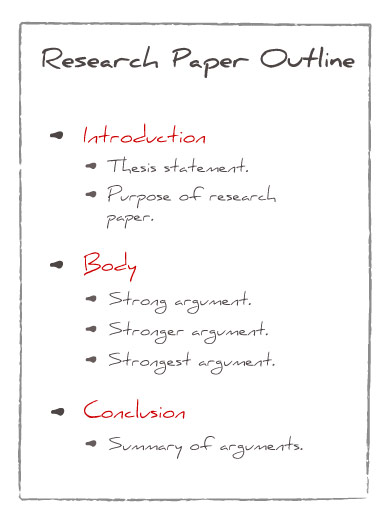 Research Paper Outline
Introduction
Thesis statement.
Purpose of research
paper.
Body
Strong argument.
Stronger argument.
Strongest argument.
Conclusion
Summary of arguments.